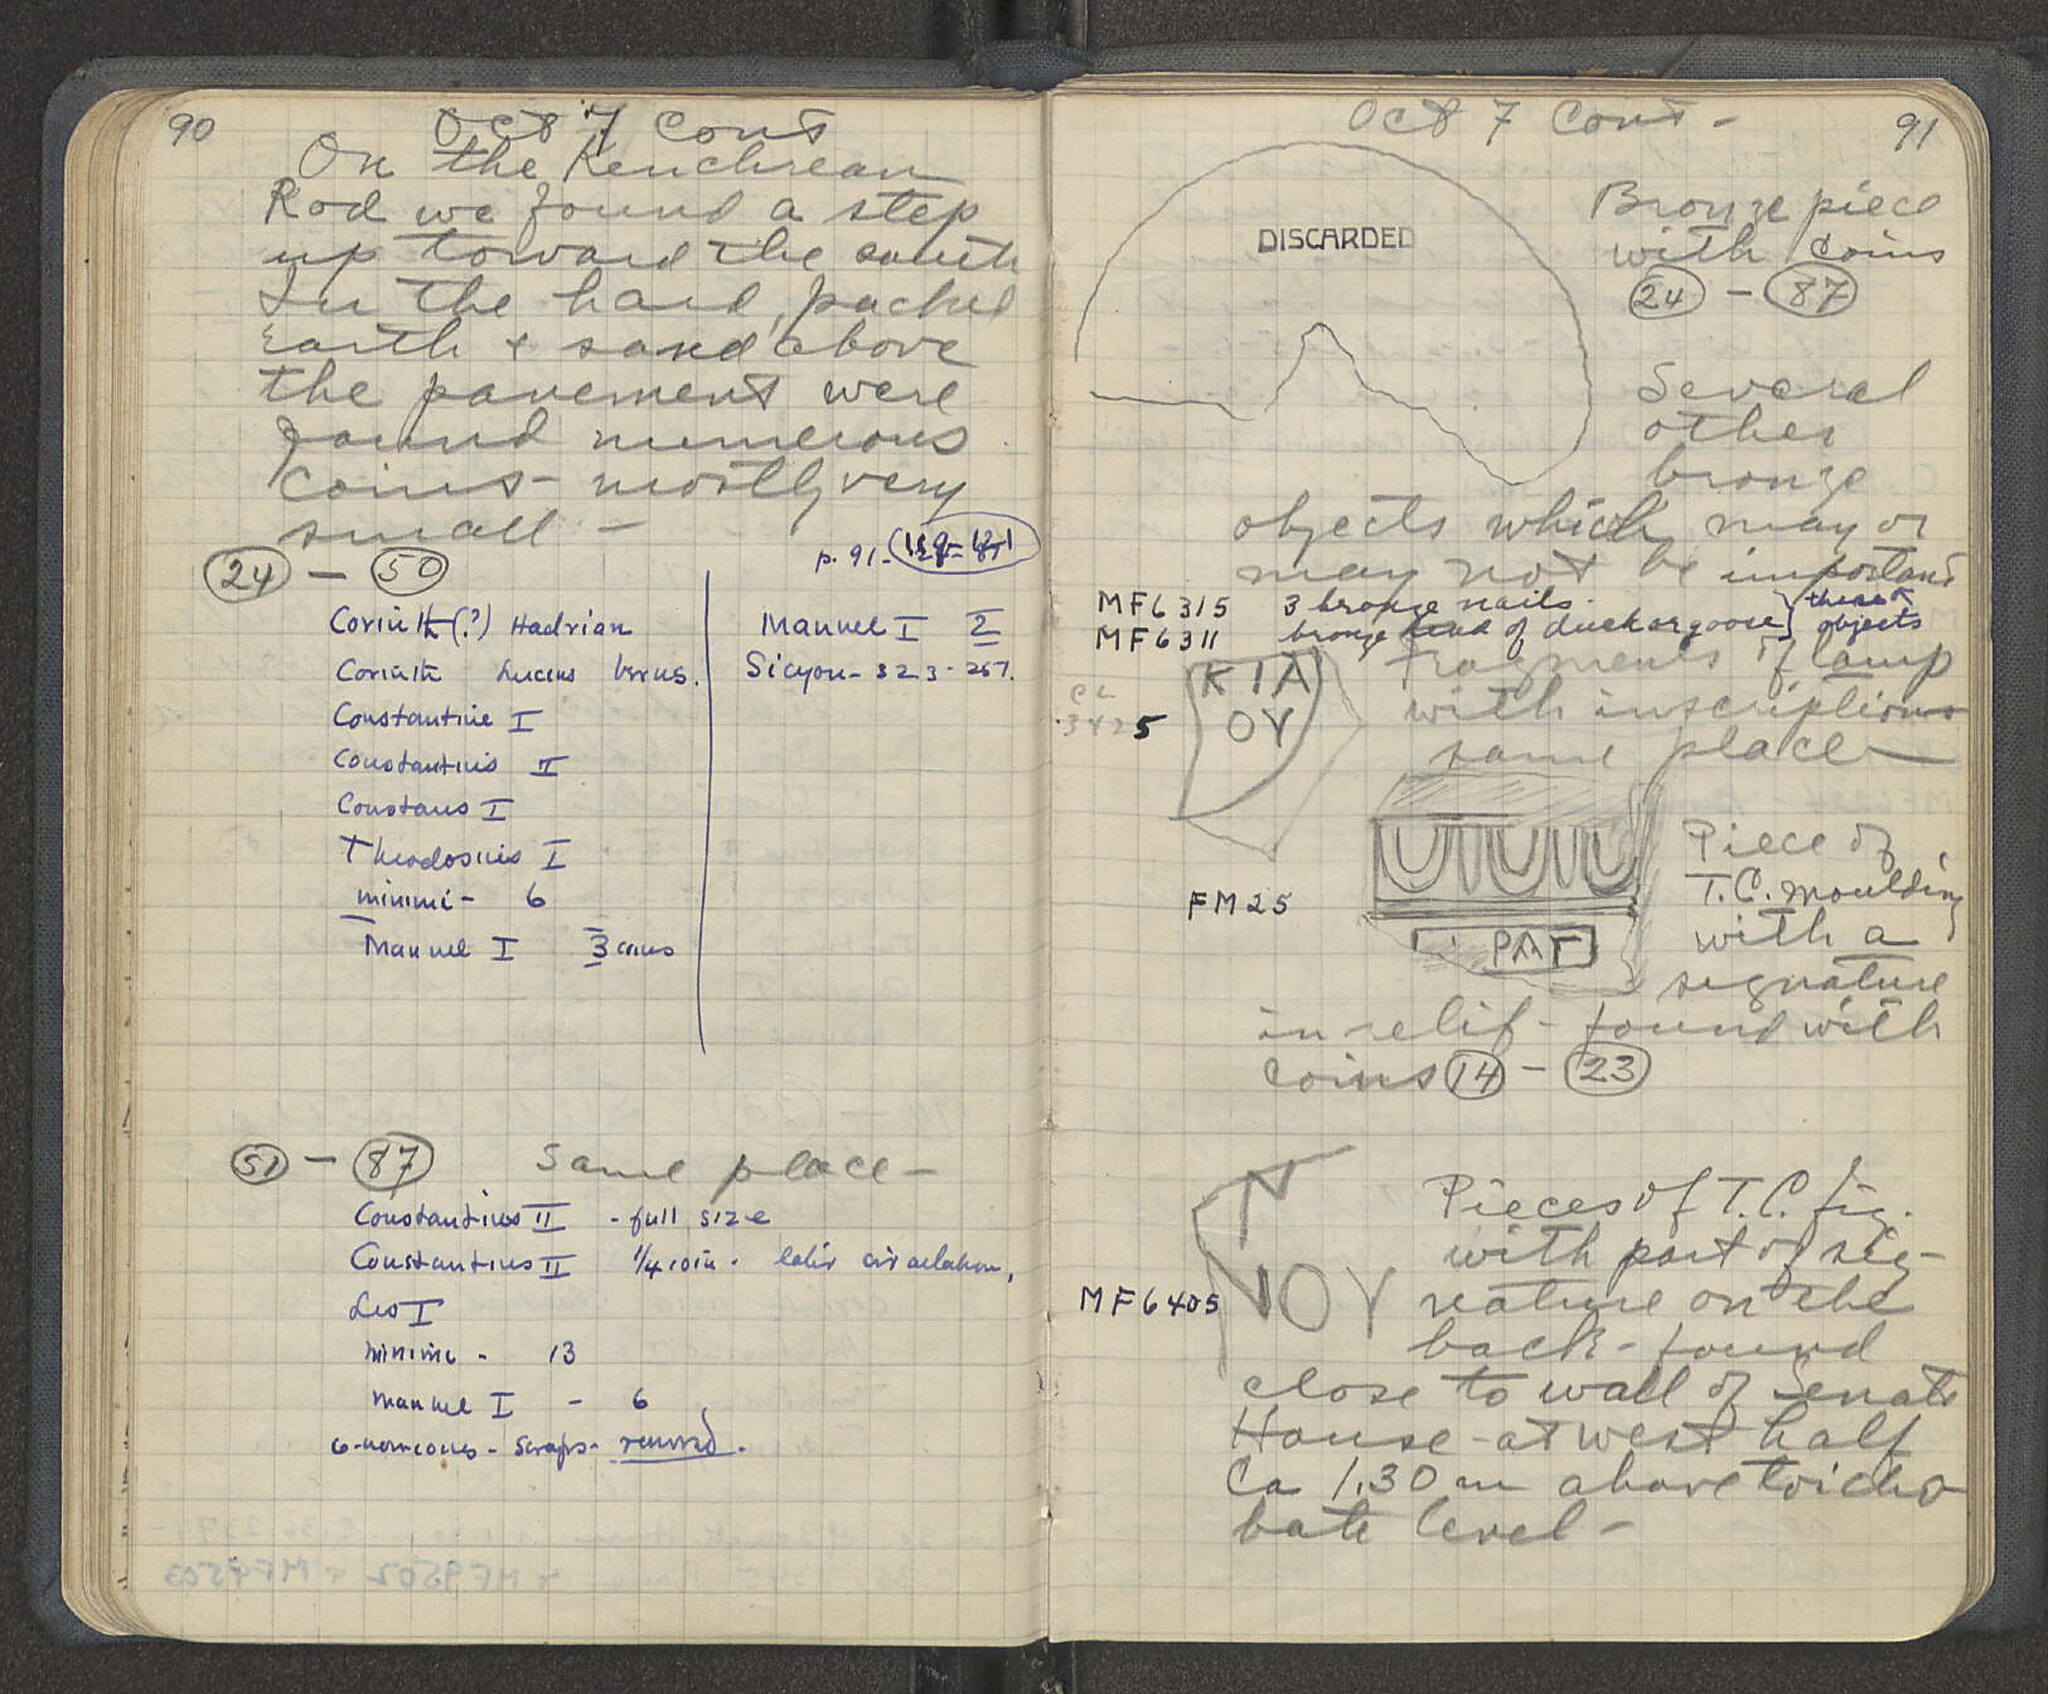 90
Oct 7 Cont
On the Kenchrean
Rod we found a step
up toward the south
In the hard, packed
Earth + sand above
the pavement were
found numerous
coins - mostly very
small -
24 - 50
p. 91 -
Corinth (?) Hadrian
Corinth Lucius Verus.
Constantine I
Constantius II
Constans I
Theodosius I
minimi - 6
Manuel I 3 coins
Manuel I 2
Sicyon - 323 - 251.
51 - 87 Same place -
Constantius II - full size
Constantius II 1/4 coin. later circulation,
Leo I
minimi - 13
Manuel I - 6
6 - non-coins - scraps - removed.
Oct 7 Cont -
91
DISCARDED
Bronze piece
with coins
24 - 87
Several
other
bronze
objects which may or
may not be important
MF6315 3 bronze nails.
MF6311 bronze head of duck or goose } these
objects
KIA
OY
CL
3425
Fragments of lamp
with inscriptions
same place -
FM25
PAT
Piece of
T.C. moulding
with a
signature
in relif - found with
coins 14 - 23
NOY
MF6405
Pieces of T.C. fig.
with part of sig-
nature on the
back - found
close to wall of Senate
House - at west half
Ca 1.30 m above toicho
bate level -